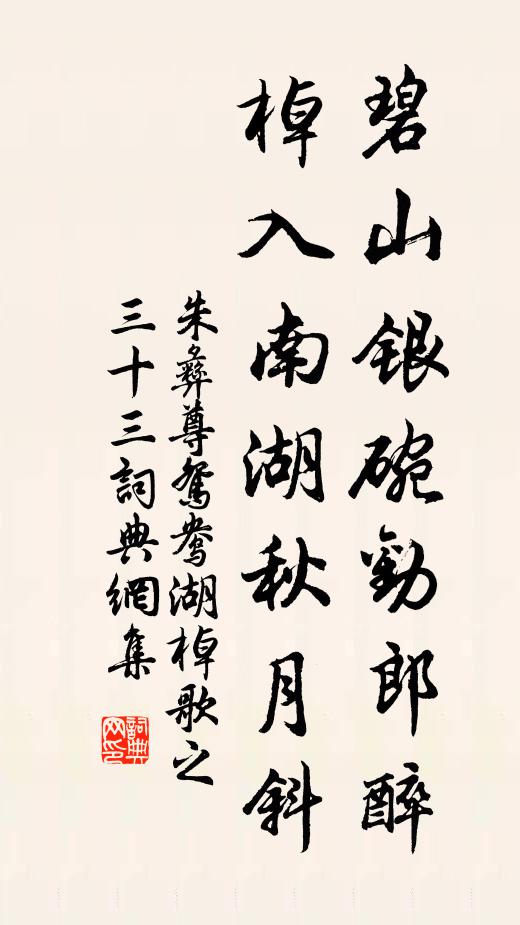 碧山銀碗勸郎醉
棹入南湖秋月斜
朱彝尊鴛鴦湖棹歌之
三十三詞典網集
詞典網印